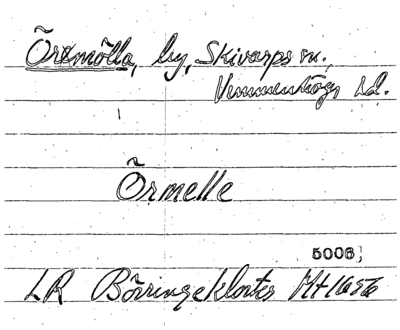 Örmölla, by, Skivarps sn.,
Vemmenhögs hd.
Örmelle
5006;
LR Börringekloster Mt 1656